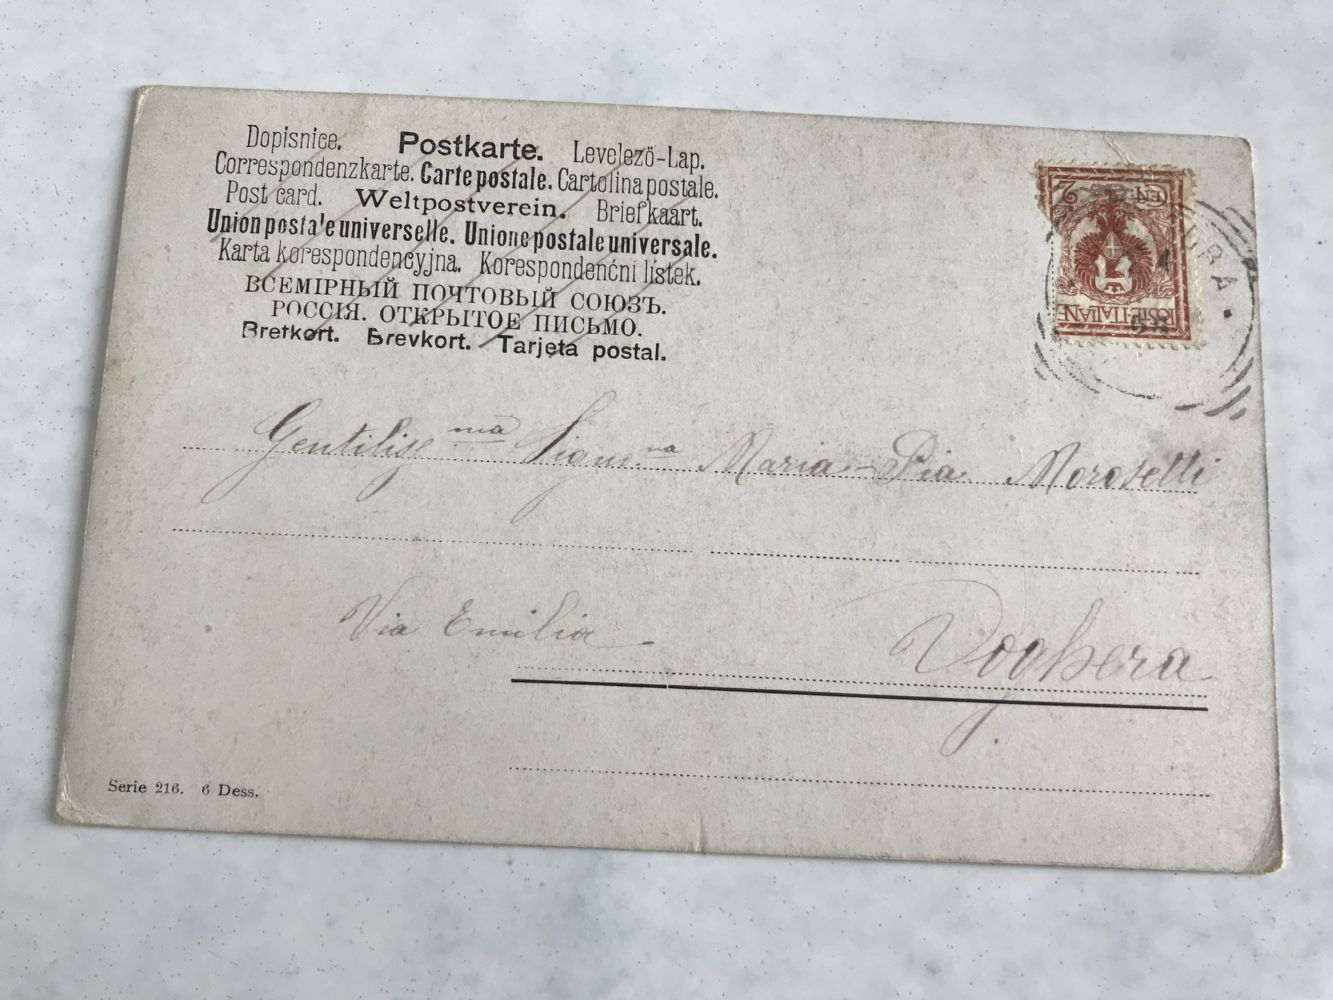 Dopisnice. Postkarte. Levelezö-Lap.
Correspondenzkarte. Carte postale. Cartolina postale.
Post card. Weltpostverein. Briefkaart.
Union postale universelle. Unione postale universale.
Karta korespondencyjna. Korespondenćni lístek.
ВСЕМІРНЫЙ ПОЧТОВЫЙ СОЮЗЪ.
РОССІЯ. ОТКРЫТОЕ ПИСЬМО.
Brefkort. Brevkort. Tarjeta postal.
POSTE-ITALIANE
2
Maria-Pia
Via Emilia
Voghera
Serie 216. 6 Dess.